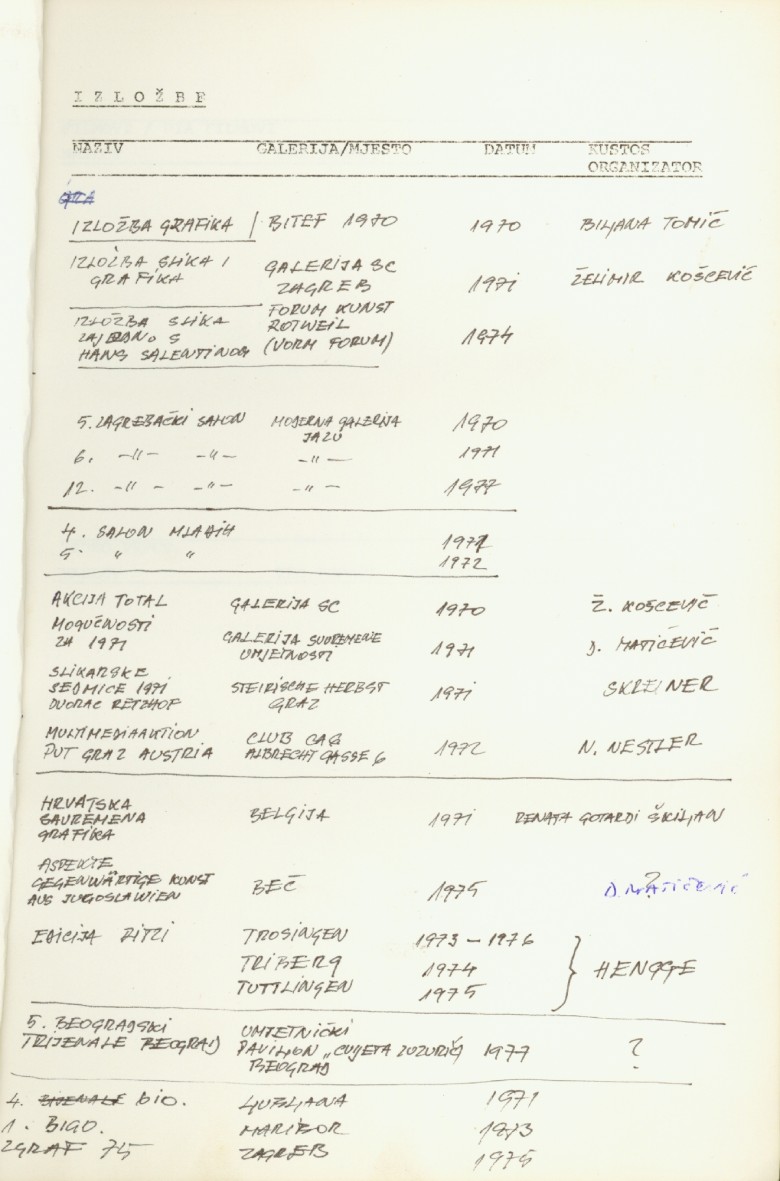 IZLOŽBE
NAZIV GALERIJA/MJESTO DATUM KUSTOS
ORGANIZATOR
GRA
IZLOŽBA GRAFIKA / BITEF 1970 1970 BILJANA TOMIČ
IZLOŽBA SLIKA I GALERIJA SC
GRAFIKA ZAGREB 1971 ŽELIMIR KOŠČEVIČ
FORUM KUNST
IZLOŽBA SLIKA ROTWEIL
ZAJEDNO S (VORM FORUM) 1974
HANS SALENTINOG
5. ZAGREBAČKI SALON MODERNA GALERIJA 1970
JAZU
6. -"- -"- -"- 1971
12. -"- -"- -"- 1977
4. SALON MLADIH 1971
5. " " 1972
AKCIJA TOTAL GALERIJA SC 1970 Ž. KOŠČEVIČ
MOGUČNOSTI
ZA 1971 GALERIJA SUVREMENE 1971 D. MATIČEVIČ
UMJETNOSTI
SLIKARSKE
SEDMICE 1971 STEIRISCHE HERBST 1971 SKREINER
DVORAC RETZHOF GRAZ
MULTIMEDIAAKTION CLUB CAG
PUT GRAZ AUSTRIA ALBRECHTGASSE 6 1972 N. NESTLER
HRVATSKA
SAVREMENA BELGIJA 1971 RENATA GOTARDI ŠKILJAN
GRAFIKA
ASPEKTE
GEGENWÄRTIGE KUNST BEČ 1975 ? D. MATIČEVIČ
AUS JUGOSLAWIEN
EDICIJA PITZI TROSINGEN 1973 – 1976
TRIBERG 1974 HENGGE
TUTTLINGEN 1975
5. BEOGRADSKI UMJETNIČKI
TRIJENALE BEOGRAD PAVILION „CVIJETA ZUZORIČ 1977 ?
BEOGRAD
4. BIJENALE bio. LJUBLJANA 1971
1. BIGO. MARIBOR 1973
ZGRAF 75 ZAGREB 1975